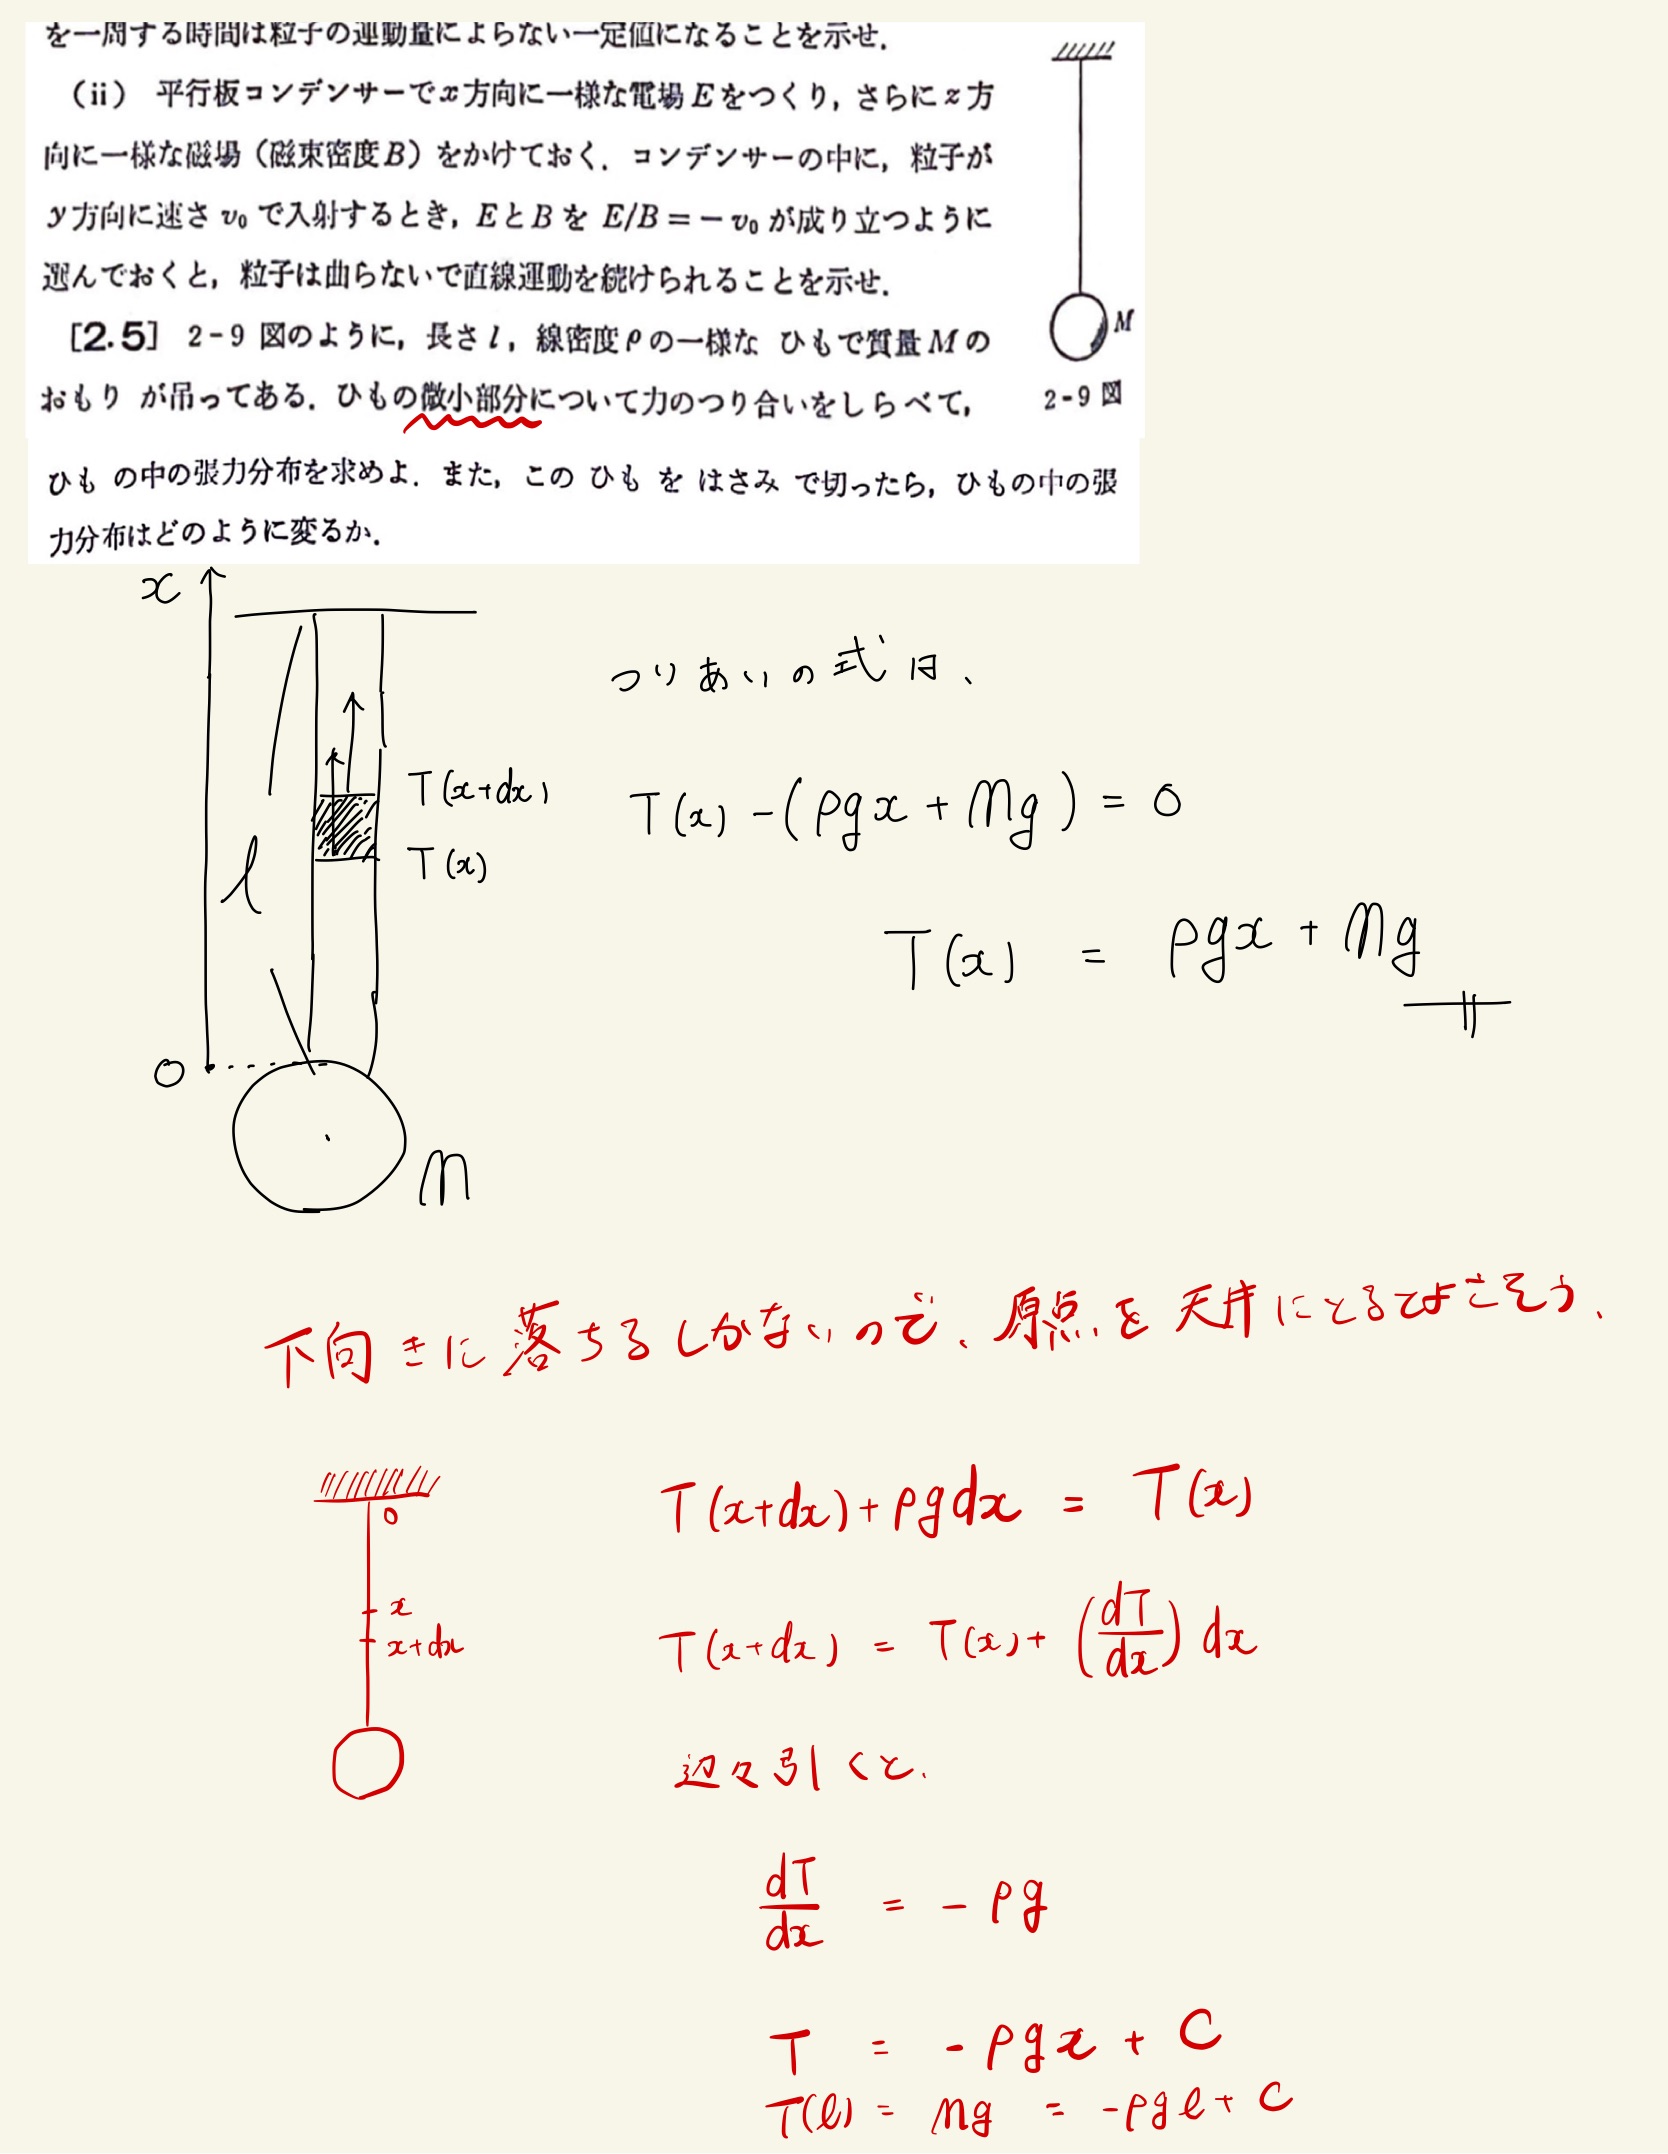 を一周する時間は粒子の運動量によらない一定値になることを示せ.
(ii) 平行板コンデンサーでx方向に一様な電場Eをつくり,さらにz方
向に一様な磁場(磁束密度B)をかけておく.コンデンサーの中に,粒子が
y方向に速さ v₀ で入射するとき,EとBを E/B=−v₀ が成り立つように
選んでおくと,粒子は曲らないで直線運動を続けられることを示せ.
[2.5] 2-9 図のように,長さ l,線密度ρの一様な ひもで質量Mの
おもり が吊ってある.ひもの微小部分について力のつり合いをしらべて,
M
2-9 図
ひも の中の張力分布を求めよ.また,この ひも を はさみ で切ったら,ひもの中の張
力分布はどのように変るか.
x
つりあいの式は、
T(x+dx)
T(x)
l
T(x) −(ρgx + Mg) = 0
T(x) = ρgx + Mg
0
M
下向きに落ちるしかないので、原点を天井にとるでよさそう.
0
x
x+dx
T(x+dx)+ρgdx = T(x)
T(x+dx) = T(x)+(dT/dx)dx
辺々引くと.
dT/dx = −ρg
T = −ρgx + C
T(l) = Mg = −ρgl + C